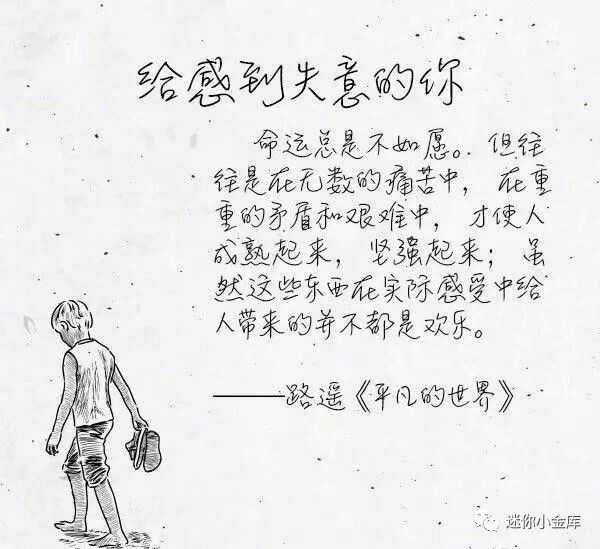 给感到失意的你
命运总是不如愿。但往
往是在无数的痛苦中，在重
重的矛盾和艰难中，才使人
成熟起来，坚强起来；虽
然这些东西在实际感受中给
人带来的并不都是欢乐。
——路遥《平凡的世界》
迷你小金库